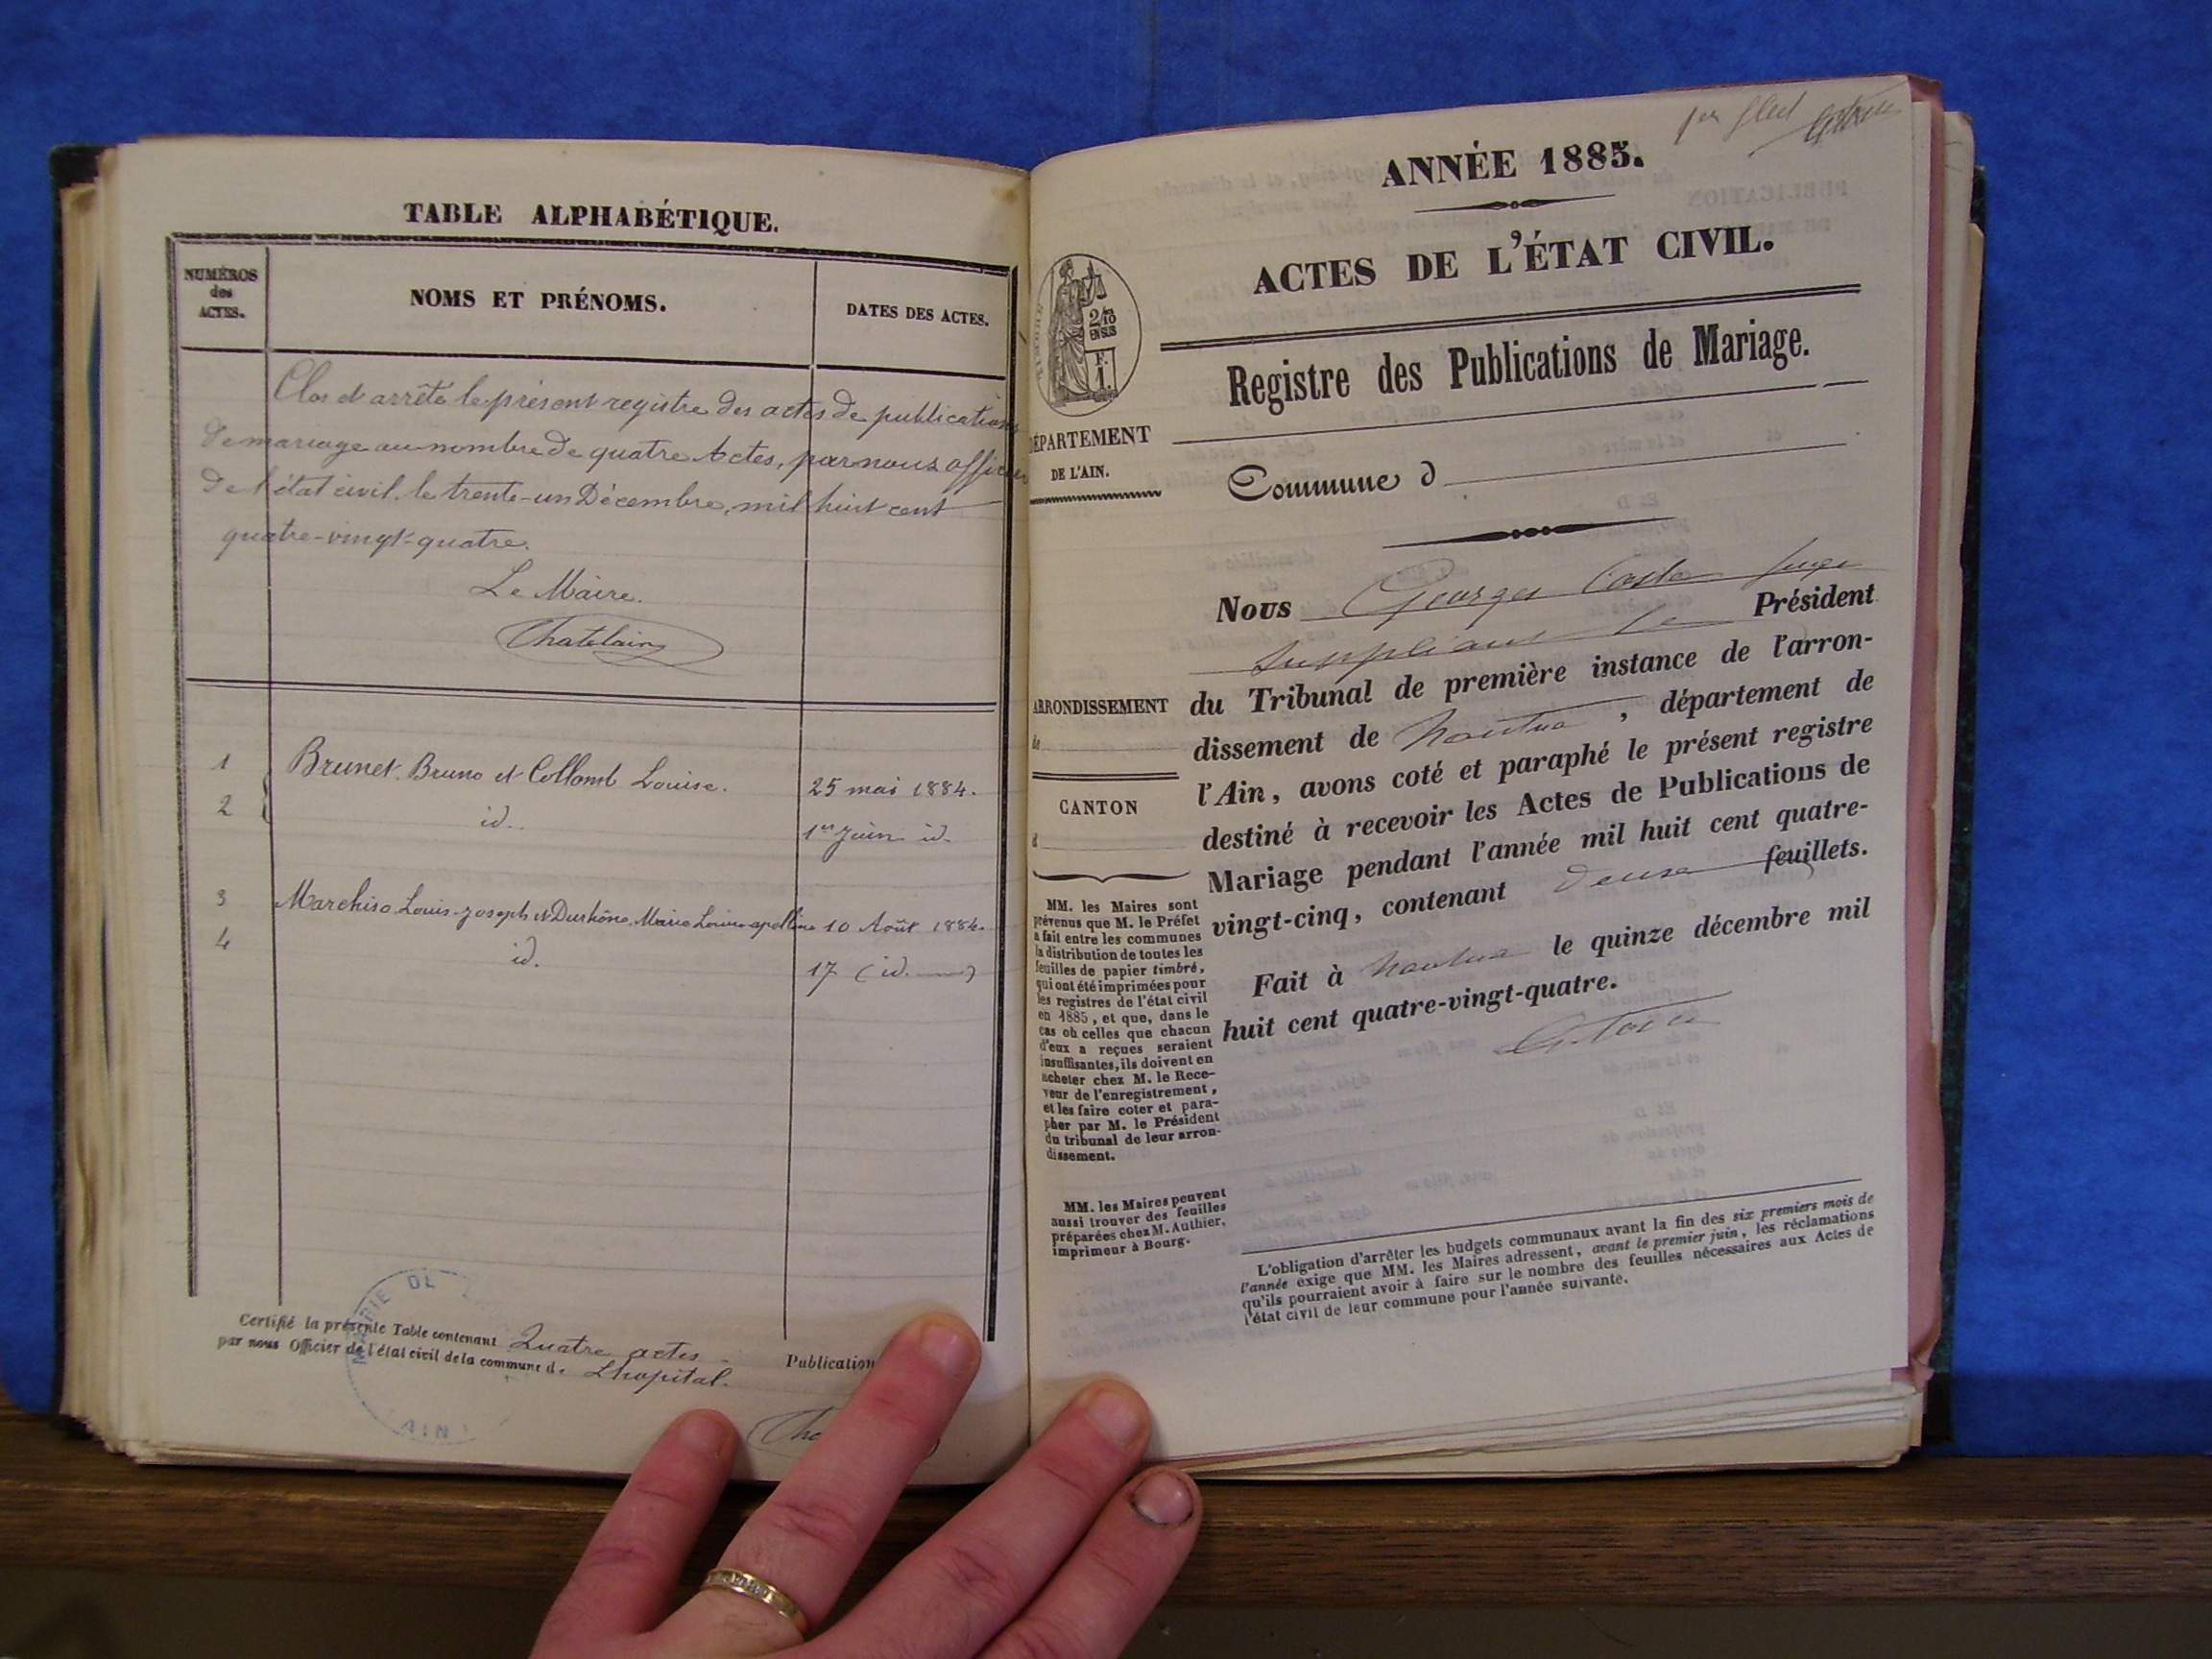 TABLE ALPHABÉTIQUE.
NUMÉROS
des
ACTES.
NOMS ET PRÉNOMS.
DATES DES ACTES.
Clos et arrêté le présent registre des actes de publications
de mariage au nombre de quatre Actes, par nous officier
de l'état civil, le trente-un Décembre, mil huit cent
quatre-vingt-quatre.
Le Maire.
Chatelain
1 Brunet Bruno et Collomb Louise. 25 mai 1884.
2 id. 1er Juin id.
3 Marchiso Louis-Joseph et Durhône Marie Louise apolline 10 Août 1884.
4 id. 17 (id. )
MAIRIE DE
AIN
Certifié la présente Table contenant Quatre actes Publication
par nous Officier de l'état civil de la commune de Lhopital.
ANNÉE 1885.
ACTES DE L'ÉTAT CIVIL.
2/10
EN SUS
F.
1.
Registre des Publications de Mariage.
DÉPARTEMENT
DE L'AIN.
Commune d
Nous Georges Coste Juge
suppléant le Président
du Tribunal de première instance de l'arron-
dissement de Nantua, département de
l'Ain, avons coté et paraphé le présent registre
destiné à recevoir les Actes de Publications de
Mariage pendant l'année mil huit cent quatre-
vingt-cinq, contenant deux feuillets.
Fait à Nantua le quinze décembre mil
huit cent quatre-vingt-quatre.
ARRONDISSEMENT
de
CANTON
d
MM. les Maires sont
prévenus que M. le Préfet
a fait entre les communes
la distribution de toutes les
feuilles de papier timbré,
qui ont été imprimées pour
les registres de l'état civil
en 1885, et que, dans le
cas où celles que chacun
d'eux a reçues seraient
insuffisantes, ils doivent en
acheter chez M. le Rece-
veur de l'enregistrement,
et les faire coter et para-
pher par M. le Président
du tribunal de leur arron-
dissement.
MM. les Maires peuvent
aussi trouver des feuilles
préparées chez M. Authier,
imprimeur à Bourg.
L'obligation d'arrêter les budgets communaux avant la fin des six premiers mois de
l'année exige que MM. les Maires adressent, avant le premier juin, les réclamations
qu'ils pourraient avoir à faire sur le nombre des feuilles nécessaires aux Actes de
l'état civil de leur commune pour l'année suivante.